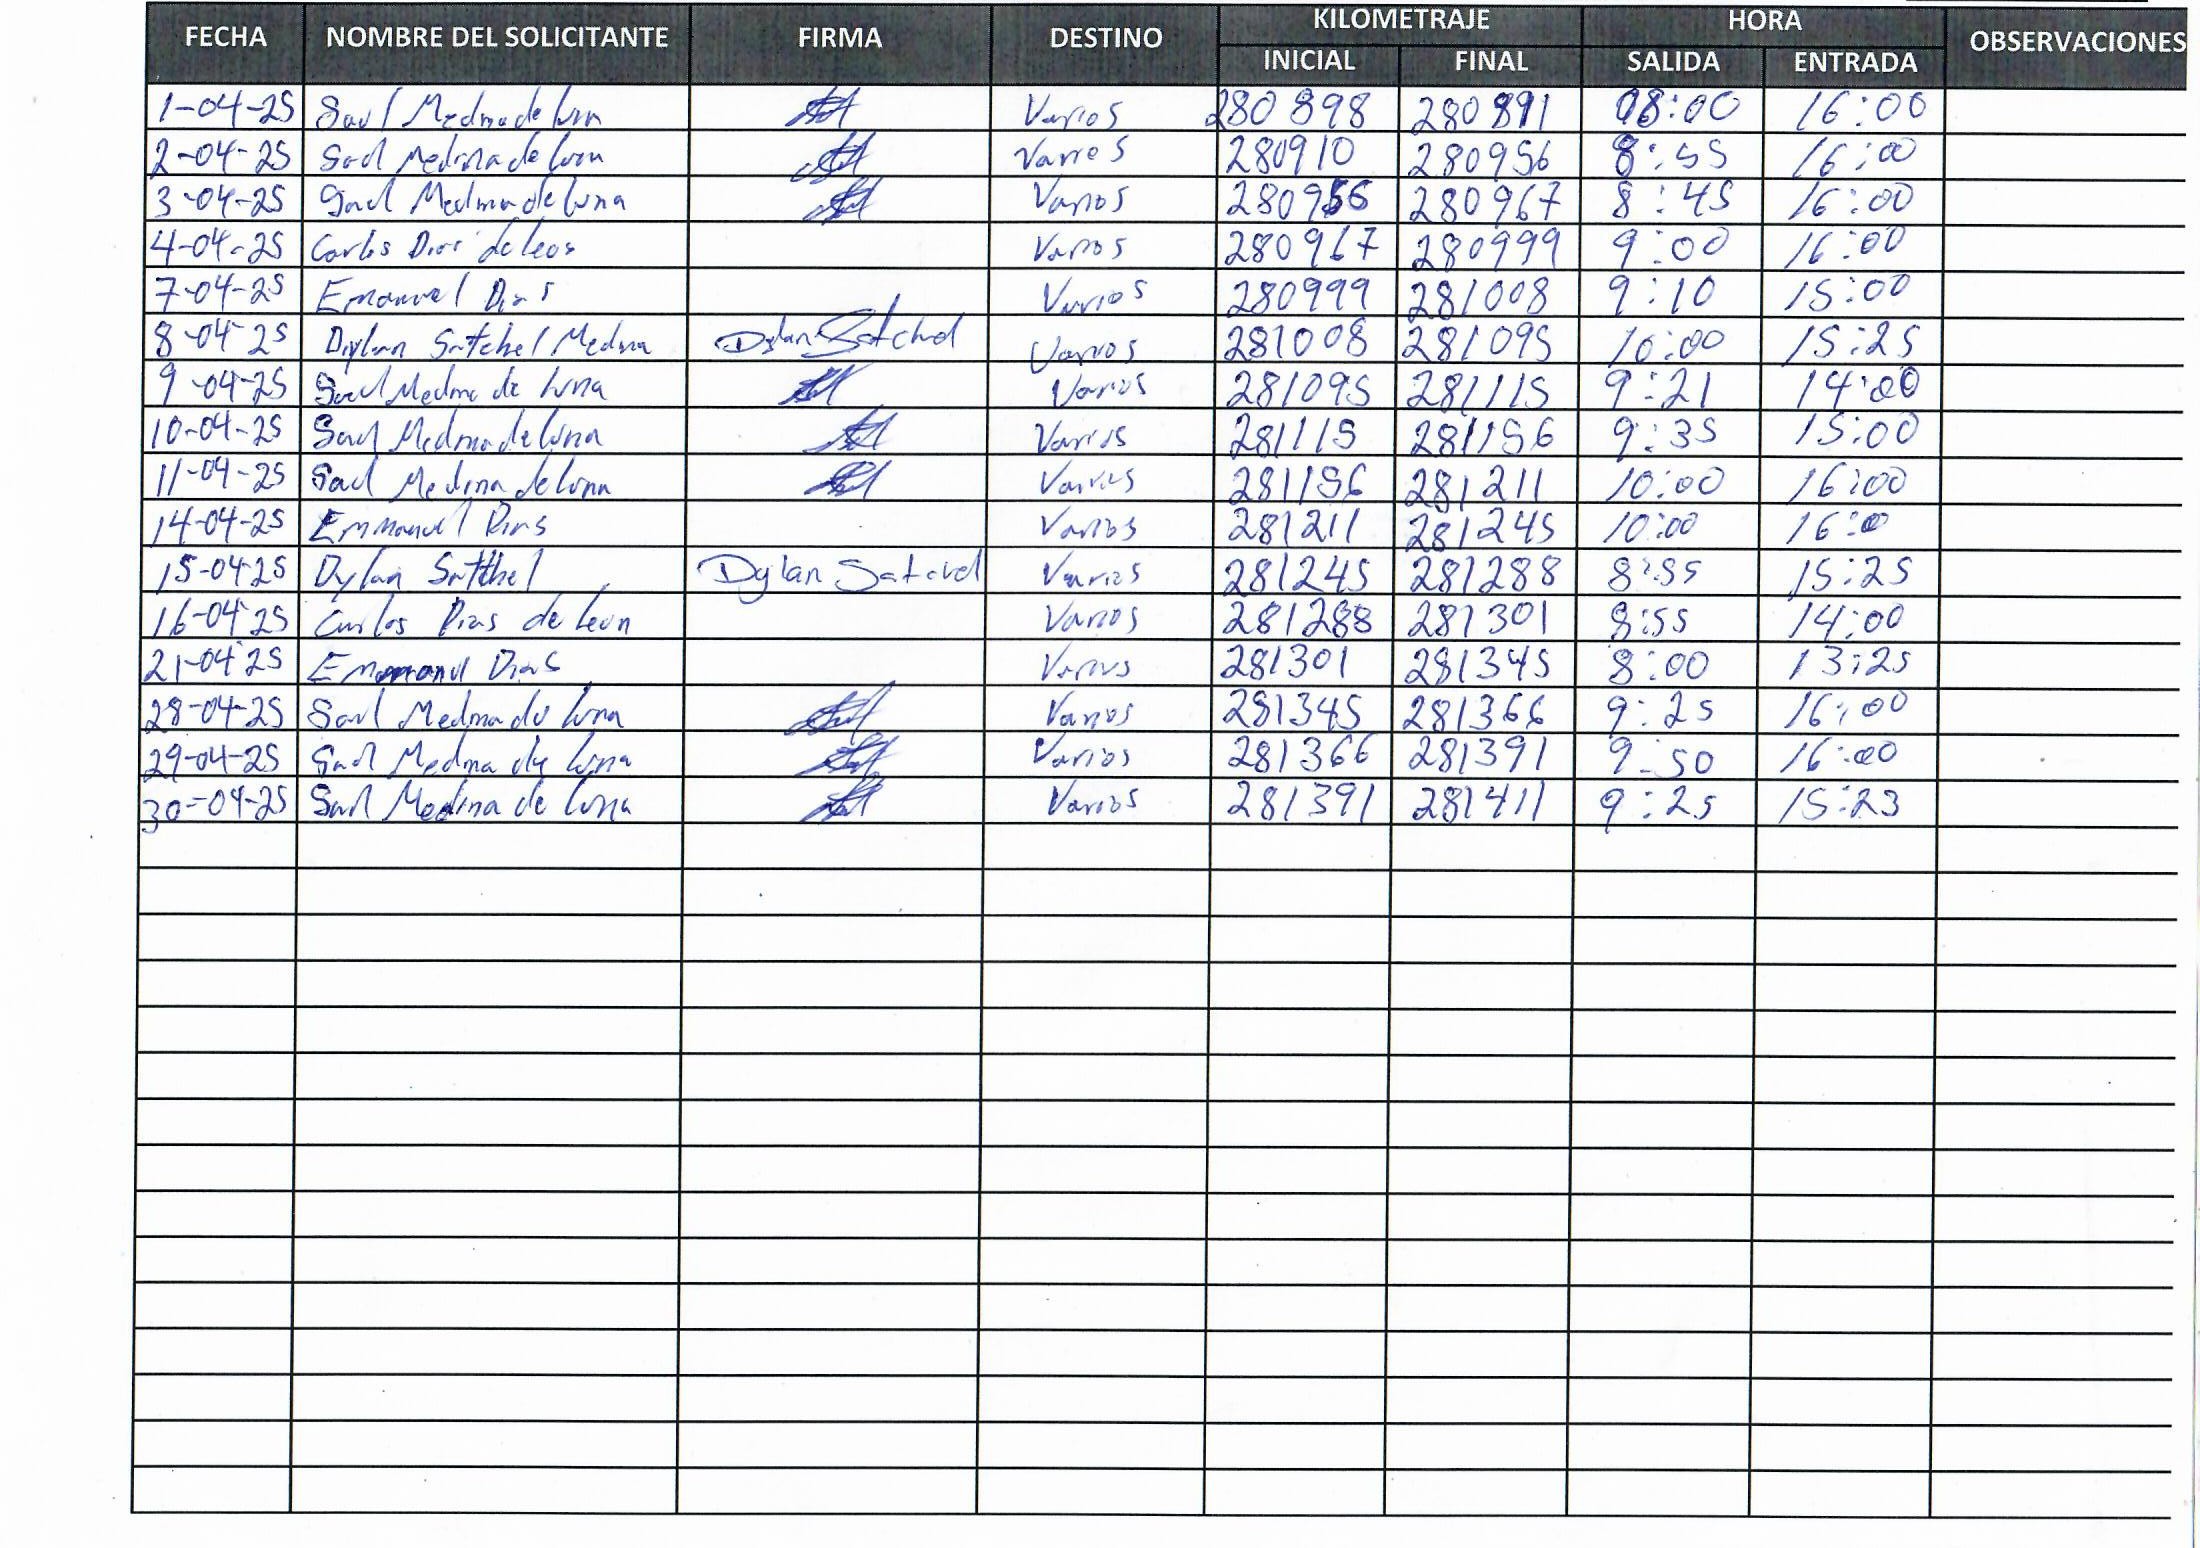 FECHA NOMBRE DEL SOLICITANTE FIRMA DESTINO KILOMETRAJE HORA OBSERVACIONES
INICIAL FINAL SALIDA ENTRADA
1-04-25 Saul Medina de luna Varios 280898 280891 08:00 16:00
2-04-25 Saul Medina de luna Varios 280910 280956 8:55 16:00
3-04-25 Saul Medina de luna Varios 280956 280967 8:45 16:00
4-04-25 Carlos Dias de leon Varios 280967 280999 9:00 16:00
7-04-25 Emanuel Dias Varios 280999 281008 9:10 15:00
8-04-25 Dylan Satchel Medina Dylan Satchel Varios 281008 281095 10:00 15:25
9-04-25 Saul Medina de luna Varios 281095 281115 9:21 14:00
10-04-25 Saul Medina de luna Varios 281115 281156 9:35 15:00
11-04-25 Saul Medina de luna Varios 281156 281211 10:00 16:00
14-04-25 Emmanuel Dias Varios 281211 281245 10:00 16:00
15-04-25 Dylan Satchel Dylan Satchel Varios 281245 281288 8:55 15:25
16-04-25 Carlos Dias de leon Varios 281288 281301 8:55 14:00
21-04-25 Emmanuel Dias Varios 281301 281345 8:00 13:25
28-04-25 Saul Medina de luna Varios 281345 281366 9:25 16:00
29-04-25 Saul Medina de luna Varios 281366 281391 9:50 16:00
30-04-25 Saul Medina de luna Varios 281391 281411 9:25 15:23